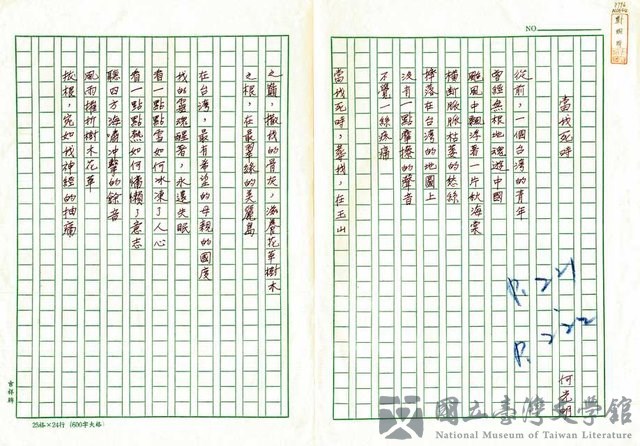 NO.
當我死時
何光明
從前，一個台灣的青年
曾經無根地魂遊中國
颱風中飄浮著一片秋海棠
橫斷脈脈枯萎的愁絲
摔落在台灣的地圖上
沒有一點摩擦的聲音
不覺一絲疼痛
當我死時，葬我，在玉山
P.221
P.222
之巔，撒我的骨灰，滋養花草樹木
之根，在最翠綠的美麗島
在台灣，最有希望的母親的國度
我的靈魂醒著，永遠失眠
看一點點雪如何冰凍了人心
看一點點熱如何慵懶了意志
聽四方海嘯沖擊的餘音
風雨摧折樹木花草
拔根，宛如我神經的抽痛
25格×24行 (600字大格)
國立臺灣文學館
National Museum of Taiwan Literature